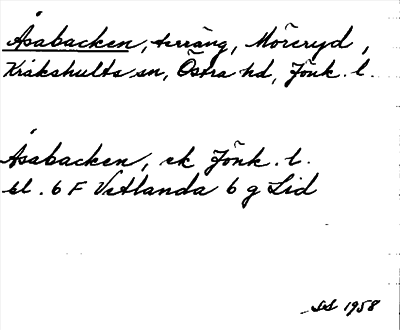 Åsabacken, terräng, Möcryd,
Kråkshults sn, Östra hd, Jönk. l.
Åsabacken, ek Jönk. l.
bl. 6 F Vetlanda 6 g Lid
SS 1958